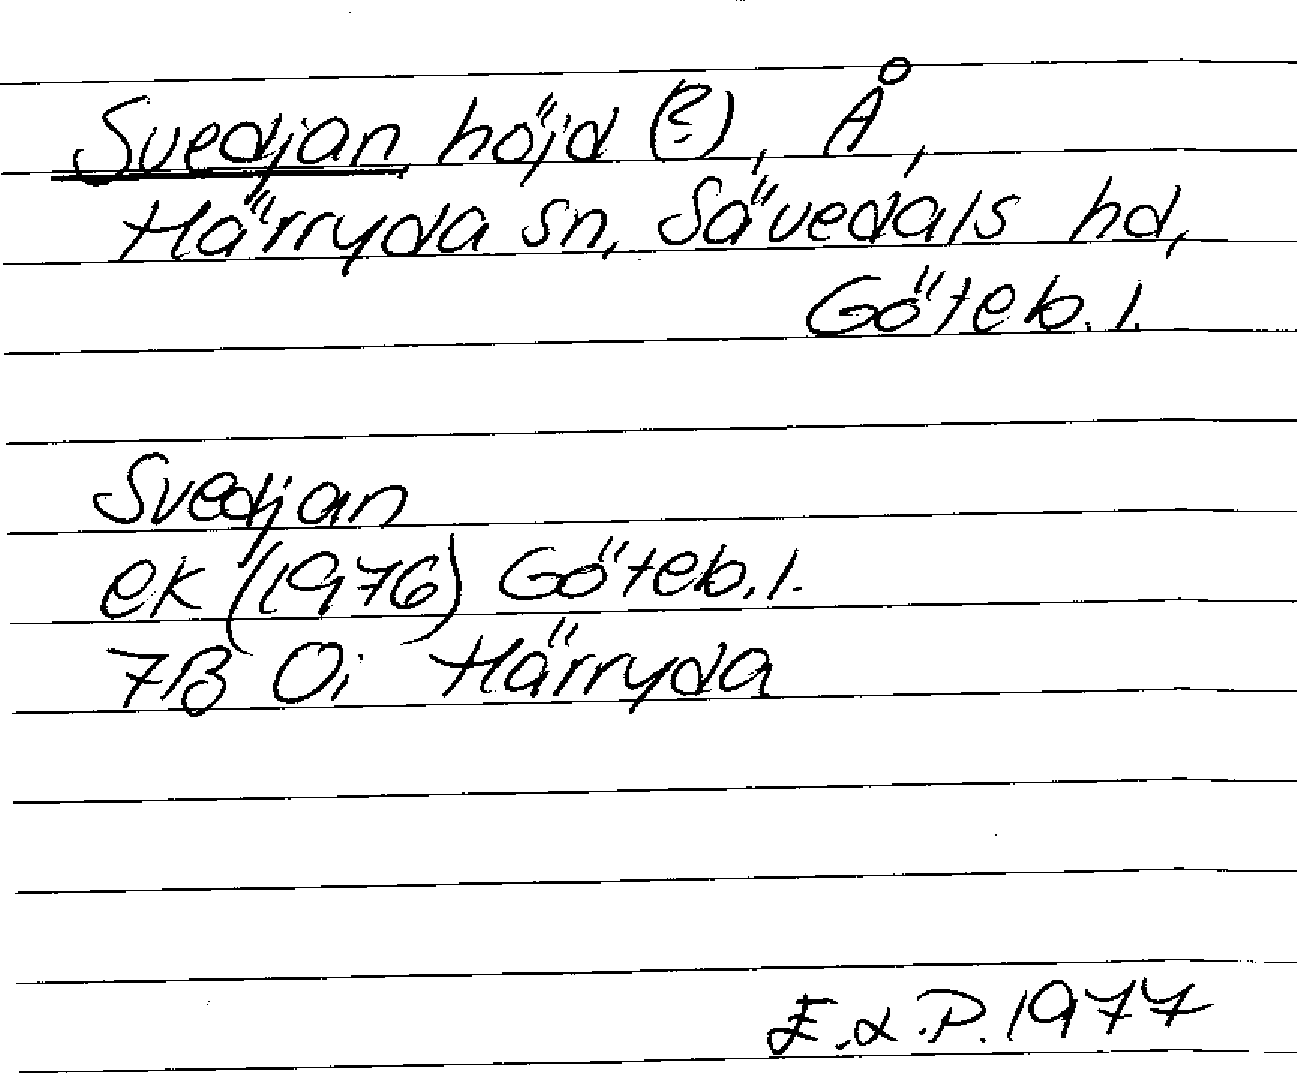 Svedjan höjd (?), Å,
Härryda sn, Sävedals hd,
Göteb. l.
Svedjan
ek (1976) Göteb. l.
7B 0i Härryda
E.α.P. 1977